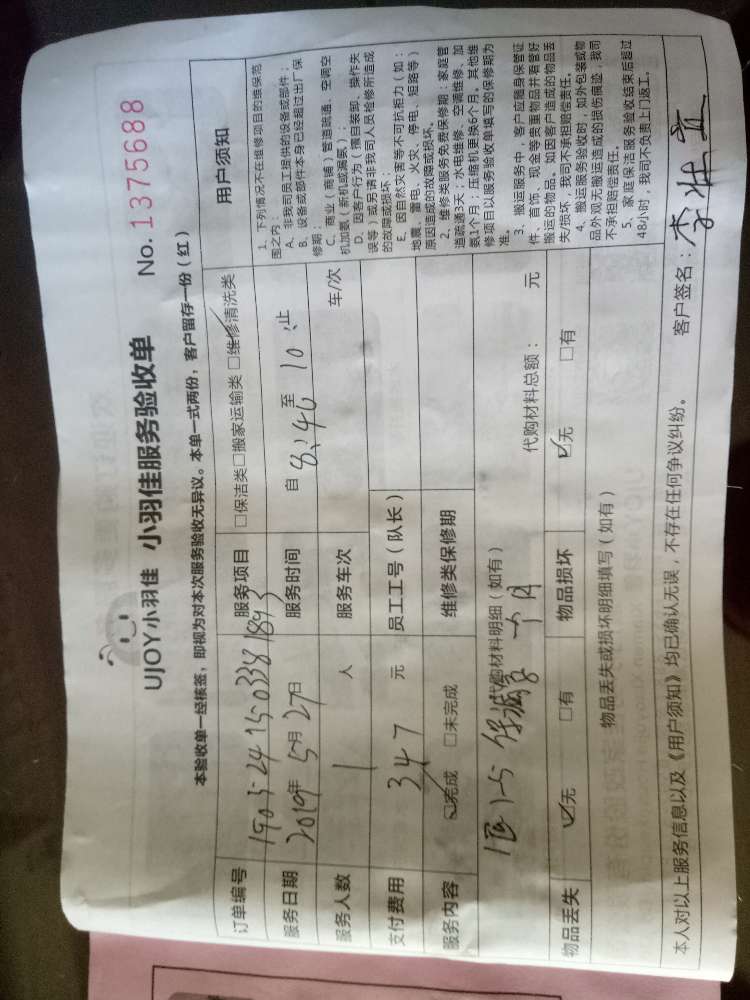 UJOY小羽佳 小羽佳服务验收单 No. 1375688
本验收单一经核签，即视为对本次服务验收无异议。本单一式两份，客户留存一份（红）
订单编号
服务项目 □保洁类□搬家运输类 □维修清洗类
服务日期 2019年 5月 27日 服务时间 自 8:40 至 10 止
服务人数 1 人 服务车次 车/次
支付费用 347 元 员工工号（队长）
服务内容 ☑完成 □未完成 维修类保修期
代购材料明细（如有） 代购材料总额： 元
个月
物品丢失 ☑无 □有 物品损坏 ☑无 □有
物品丢失或损坏明细填写（如有）
本人对以上服务信息以及《用户须知》均已确认无误，不存在任何争议纠纷。 客户签名：
用户须知
1、下列情况不在维修项目的维保范
围之内：
A、非我司员工提供的设备或部件；
B、设备或部件本身已经超过出厂保
修期；
C、商业（商铺）管道疏通、空调空
机加氨（新机或漏氨）；
D、因客户行为（擅自装卸、操作失
误等）或另请非我司人员检修所造成
的故障或损坏；
E、因自然灾害等不可抗拒力（如：
地震、雷电、火灾、停电、短路等）
原因造成的故障或损坏。
2、维修类服务免费保修期：家庭管
道疏通3天；水电维修、空调维修、加
氨1个月；压缩机更换6个月。其他维
修项目以服务验收单填写的保修期为
准。
3、搬运服务中，客户应随身保管证
件、首饰、现金等贵重物品并看管好
搬运的物品。如因客户造成的物品丢
失/损坏，我司不承担赔偿责任。
4、搬运服务验收时，如外包装或物
品外观无搬运造成的损伤痕迹，我司
不承担赔偿责任。
5、家庭保洁服务验收结束后超过
48小时，我司不负责上门返工。